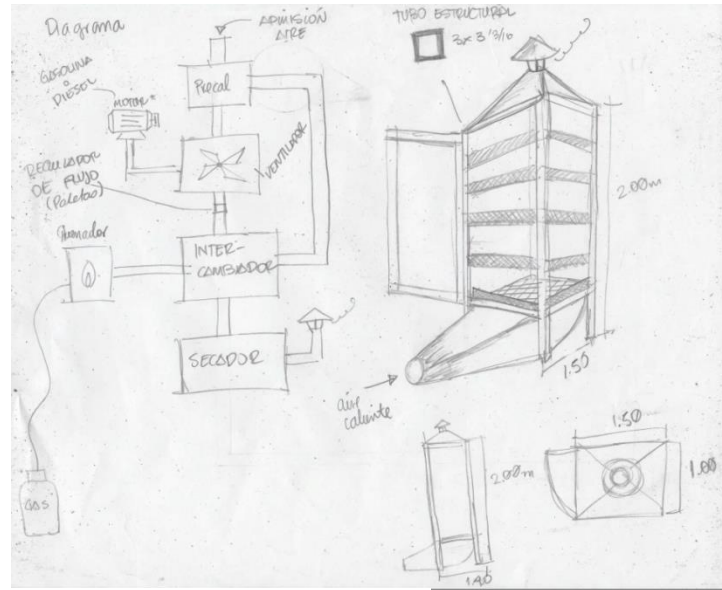 Diagrama
ADMISIÓN
AIRE
Precal
GASOLINA
o
DIÉSEL
MOTOR
VENTILADOR
REGULADOR
DE FLUJO
(Paletas)
Quemador
INTER-
CAMBIADOR
SECADOR
GAS
TUBO ESTRUCTURAL
3x3 3/16
2.00m
1.50
aire
caliente
2.00m
1.50
1.00